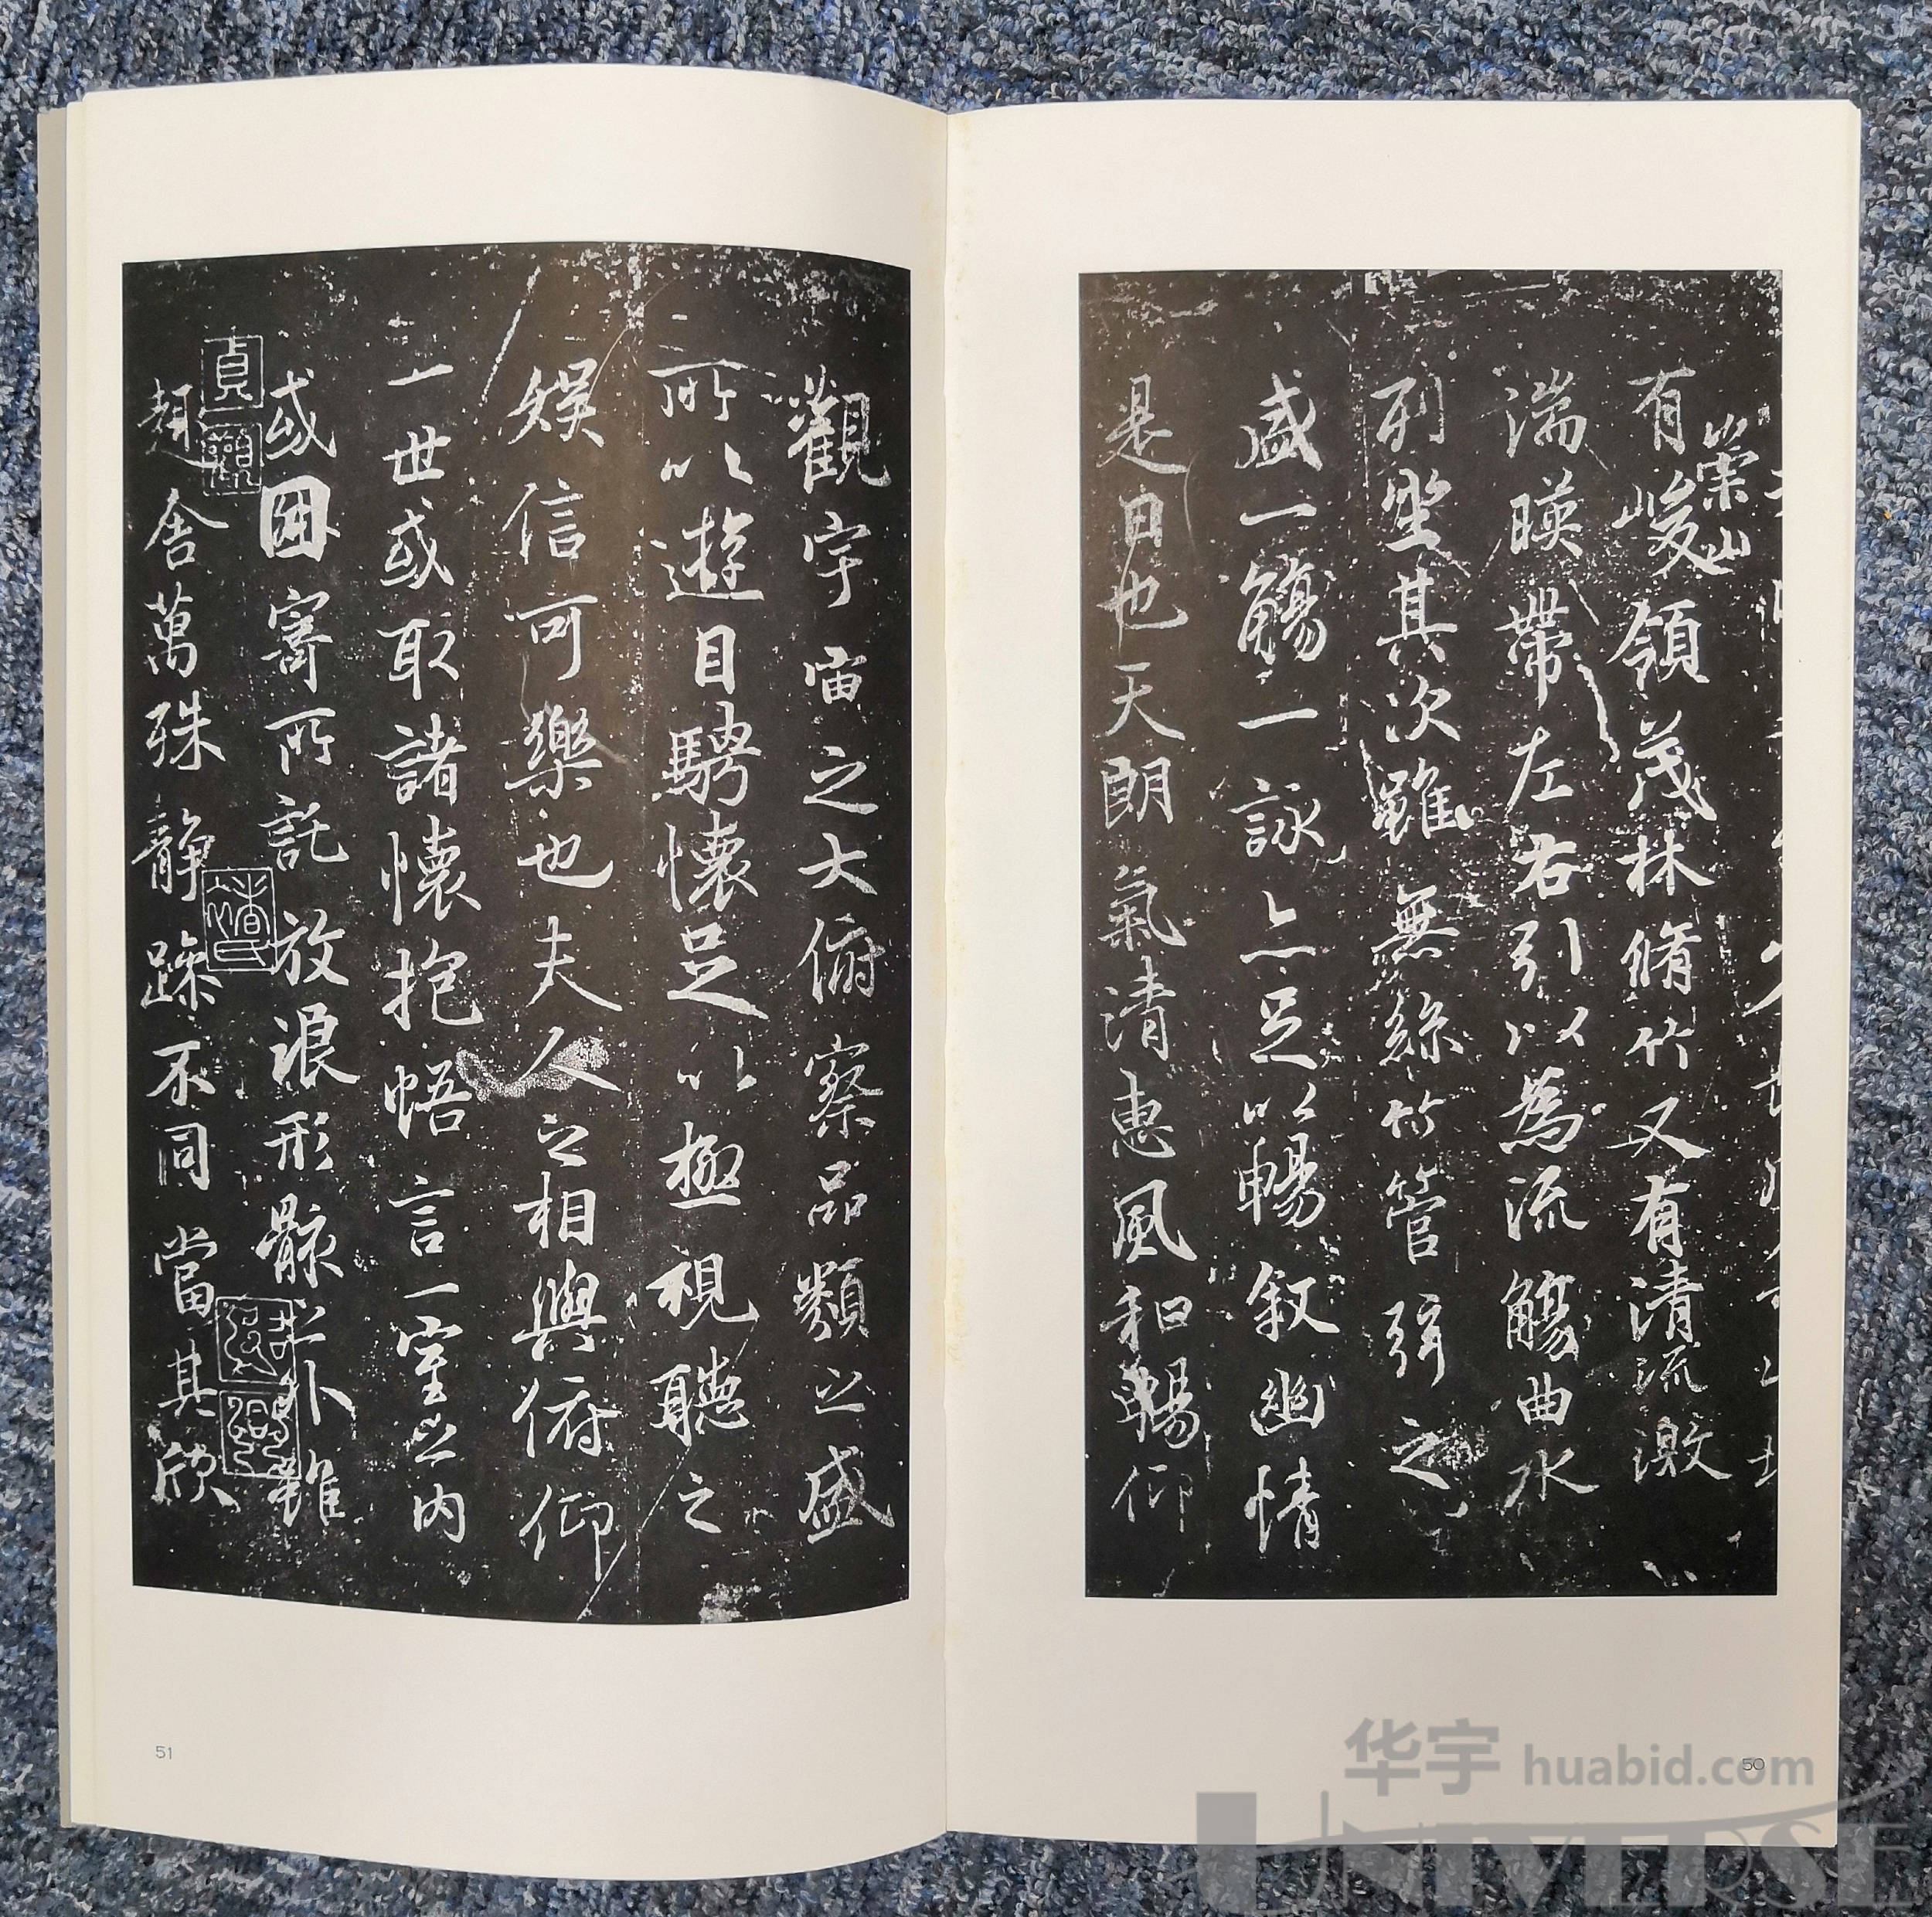 崇山
有峻領茂林脩竹又有清流激
湍暎帶左右引以為流觴曲水
列坐其次雖無絲竹管弦之
盛一觴一詠亦足以暢叙幽情
是日也天朗氣清惠風和暢仰
觀宇宙之大俯察品類之盛
所以遊目騁懷足以極視聽之
娛信可樂也夫人之相與俯仰
一世或取諸懷抱悟言一室之內
或因寄所託放浪形骸之外雖
趣舍萬殊静躁不同當其欣
貞
觀
50
51
华宇 huabid.com
UNIVERSE